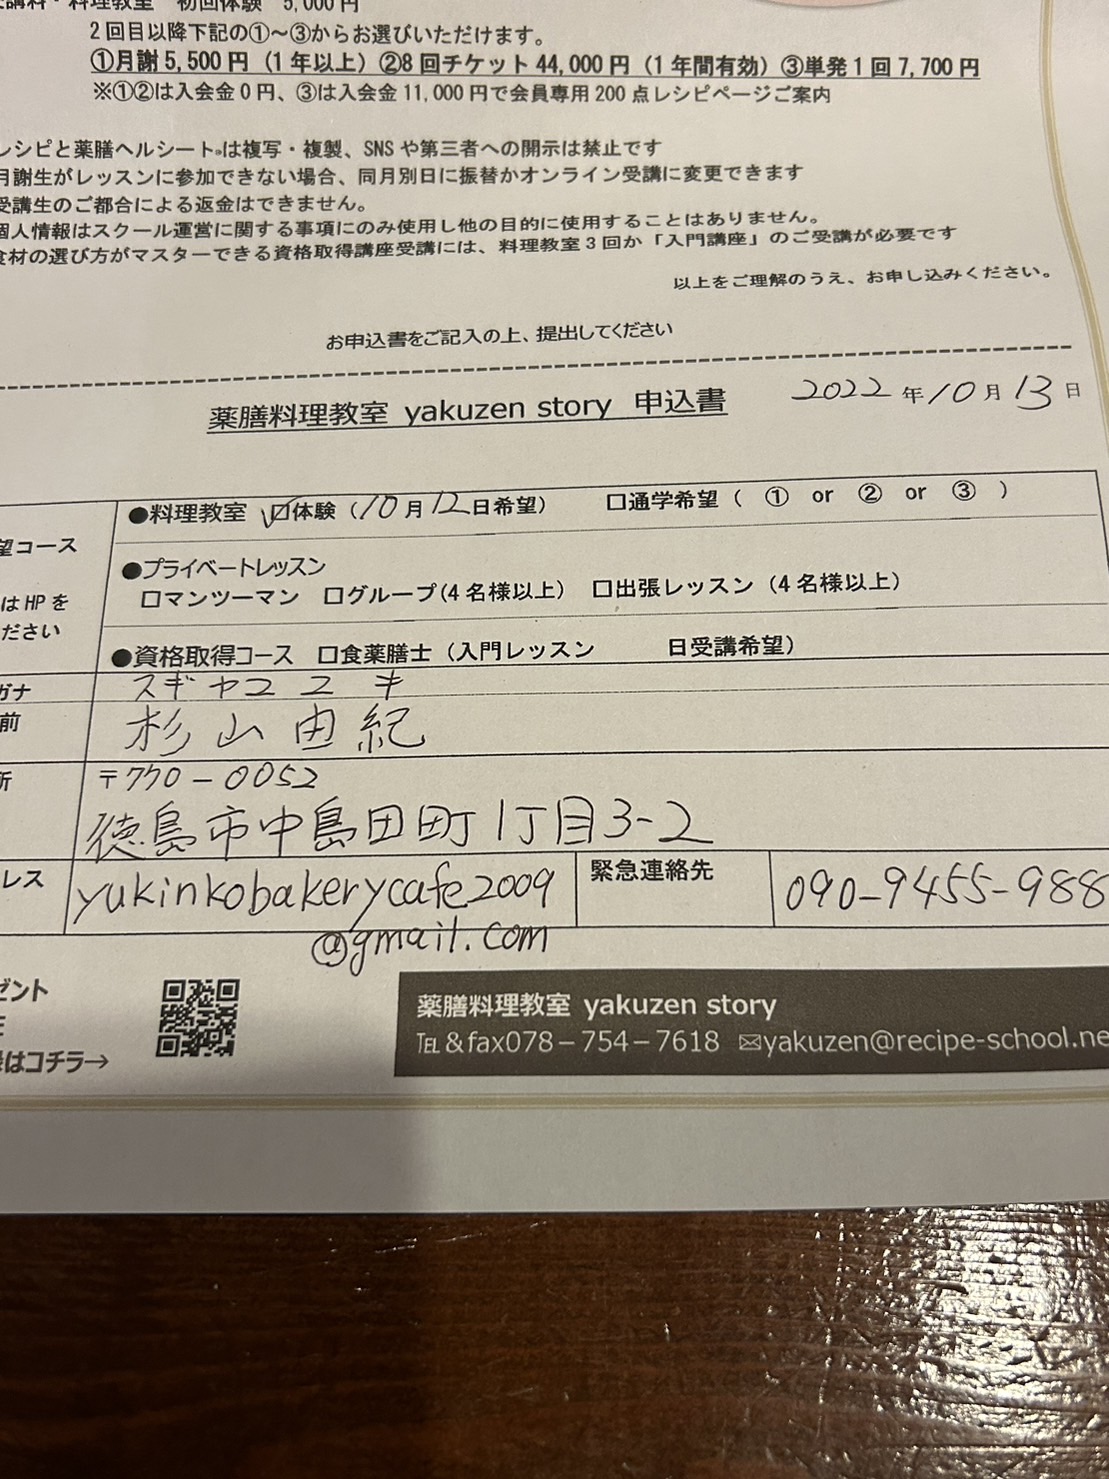 受講料・料理教室 初回体験 5,000円
2回目以降下記の①～③からお選びいただけます。
①月謝5,500円（1年以上）②8回チケット44,000円（1年間有効）③単発1回7,700円
※①②は入会金0円、③は入会金11,000円で会員専用200点レシピページご案内
レシピと薬膳ヘルシート®は複写・複製、SNSや第三者への開示は禁止です
月謝生がレッスンに参加できない場合、同月別日に振替かオンライン受講に変更できます
受講生のご都合による返金はできません。
個人情報はスクール運営に関する事項にのみ使用し他の目的に使用することはありません。
食材の選び方がマスターできる資格取得講座受講には、料理教室3回か「入門講座」のご受講が必要です
以上をご理解のうえ、お申し込みください。
お申込書をご記入の上、提出してください
薬膳料理教室 yakuzen story 申込書 2022年10月13日
●料理教室 ☑体験（10月12日希望） □通学希望（ ① or ② or ③ ）
望コース
●プライベートレッスン
はHPを
□マンツーマン □グループ(4名様以上） □出張レッスン（4名様以上）
ださい
●資格取得コース □食薬膳士（入門レッスン 日受講希望）
ガナ スギヤマ ユキ
前 杉山由紀
所 〒770-0052
徳島市中島田町1丁目3-2
レス yukinkobakerycafe2009
@gmail.com
緊急連絡先 090-9455-988
ゼント
はコチラ→
薬膳料理教室 yakuzen story
TEL&fax078－754－7618 ✉yakuzen@recipe-school.ne